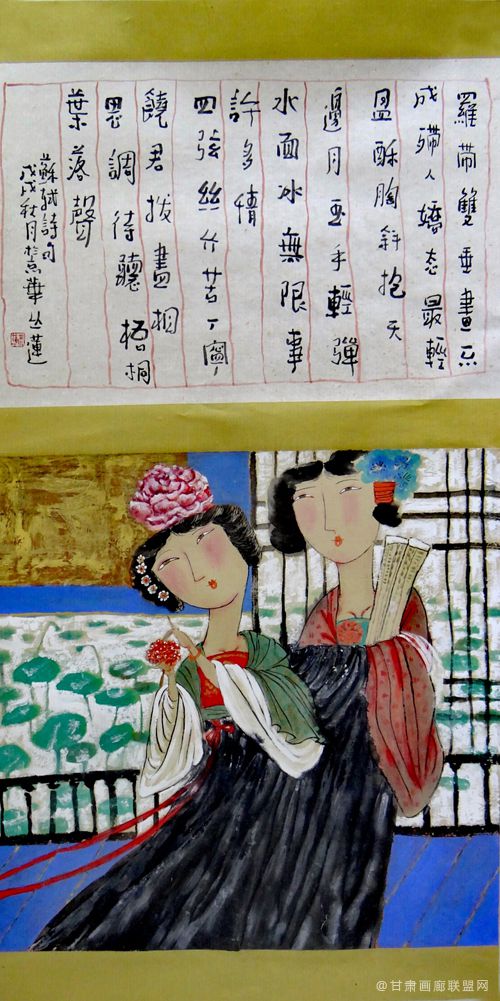 羅帶雙垂畫不
成殢人嬌态最輕
盈酥胸斜抱天
邊月玉手輕彈
水面冰無限事
許多情
四弦絲竹苦丁寧
饒君拨盡相
思調待聽梧桐
葉落聲
蘇軾詩句
戊戌秋月於京華丛蓮
@甘肃画廊联盟网